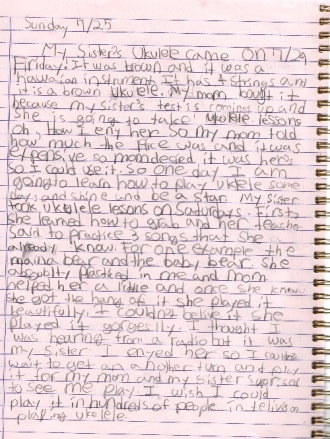 Sunday 7/25
My Sister's Ukulele came on 7/24
Friday. It was brown and it was a
hawaiian instrument. It has 4 strings and
it is a brown ukulele. My mom bought it
because my sister's test is coming up and
she is going to take ukulele lessons
oh, how I eny her. So my mom told
how much the price was and it was
expensive so mom desied it was hers
so I could use it. So one day I am
going to learn how to play uklele some
day and shine and be a star. My sister
took ukulele lessons on Saturdays. First,
she learned how to grab and her teacher
said to practice 3 songs that she
already know. For one example the
mama bear and the baby bear. She
practiced in me and mom
helped her a little and once she knew
she got the hang of it she played it
beautifully. I couldn't belive it she
played it gorgeslly. I thought I
was hearing from a radio but it was
my sister. I enyed her so I couldn't
wait to get an another turn and play
for my mom and my sister suprised
to see me play. I wish I could
play it in hundreds of people in telivison
playing ukelele.